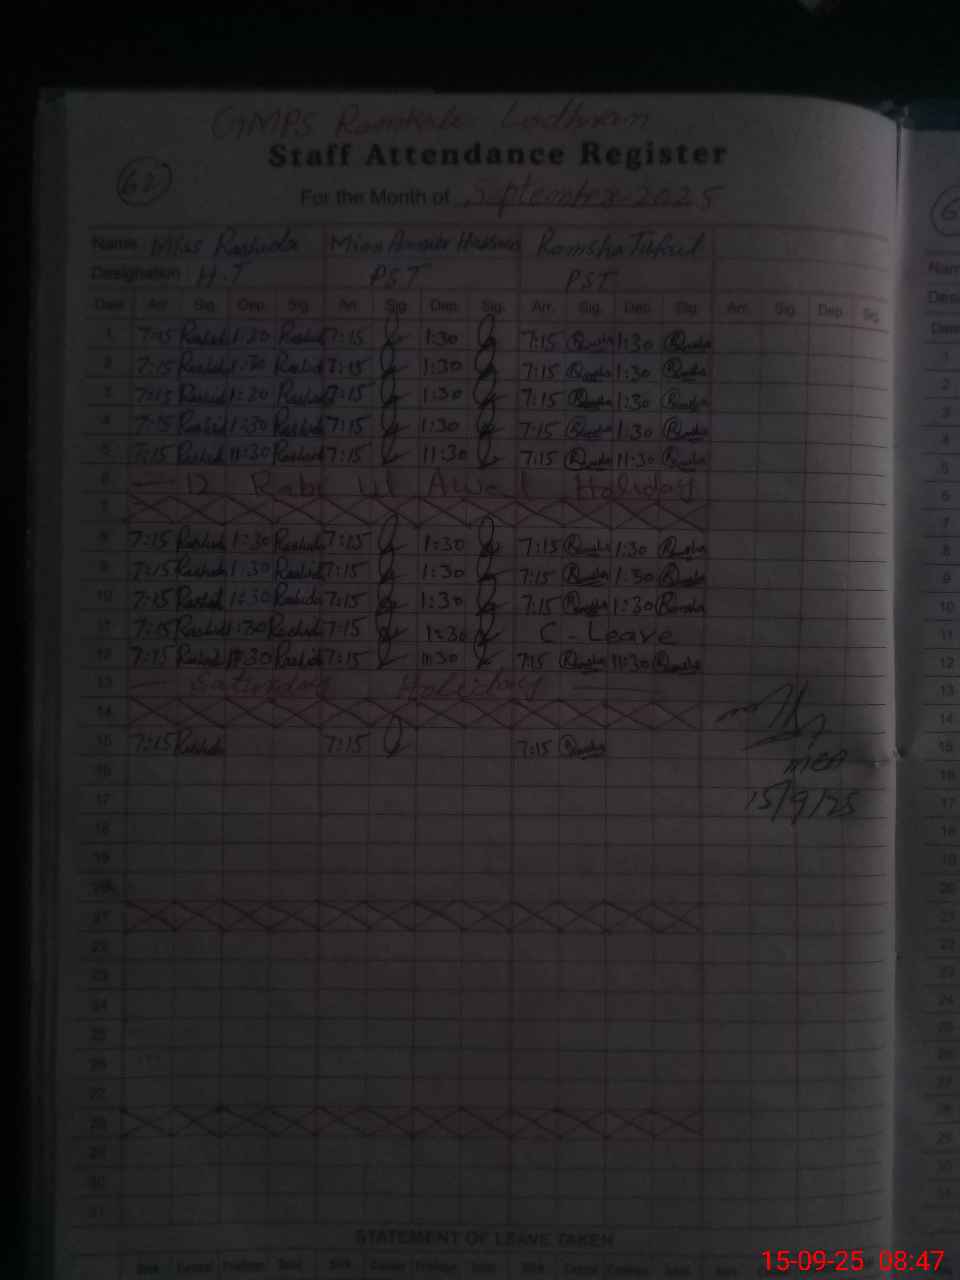 GMPS Lodhran
Staff Attendance Register
62
For the Month of September 2025
Name Miss Rashida Miss Hassan Ramsha Tufail
Designation H.T PST PST
Date Arr. Sig. Dep. Sig. Arr. Sig. Dep. Sig. Arr. Sig. Dep. Sig. Arr. Sig. Dep. Sig.
1 7:15 Rashida 1:30 Rashida 7:15 1:30 7:15 Ramsha 1:30 Ramsha
2 7:15 Rashida 1:30 Rashida 7:15 1:30 7:15 Ramsha 1:30 Ramsha
3 7:15 Rashida 1:30 Rashida 7:15 1:30 7:15 Ramsha 1:30 Ramsha
4 7:15 Rashida 1:30 Rashida 7:15 1:30 7:15 Ramsha 1:30 Ramsha
5 7:15 Rashida 11:30 Rashida 7:15 11:30 7:15 Ramsha 11:30 Ramsha
6 12 Rabi ul Awal Holiday
7
8 7:15 Rashida 1:30 Rashida 7:15 1:30 7:15 Ramsha 1:30 Ramsha
9 7:15 Rashida 1:30 Rashida 7:15 1:30 7:15 Ramsha 1:30 Ramsha
10 7:15 Rashida 1:30 Rashida 7:15 1:30 7:15 Ramsha 1:30 Ramsha
11 7:15 Rashida 1:30 Rashida 7:15 1:30 C-Leave
12 7:15 Rashida 11:30 Rashida 7:15 11:30 7:15 Ramsha 11:30 Ramsha
13 Saturday Holiday
14
15 7:15 Rashida 7:15 7:15 Ramsha
MEA
16
17 15/9/25
18
19
20
21
22
23
24
25
26
27
28
29
30
31
STATEMENT OF LEAVE TAKEN
15-09-25 08:47